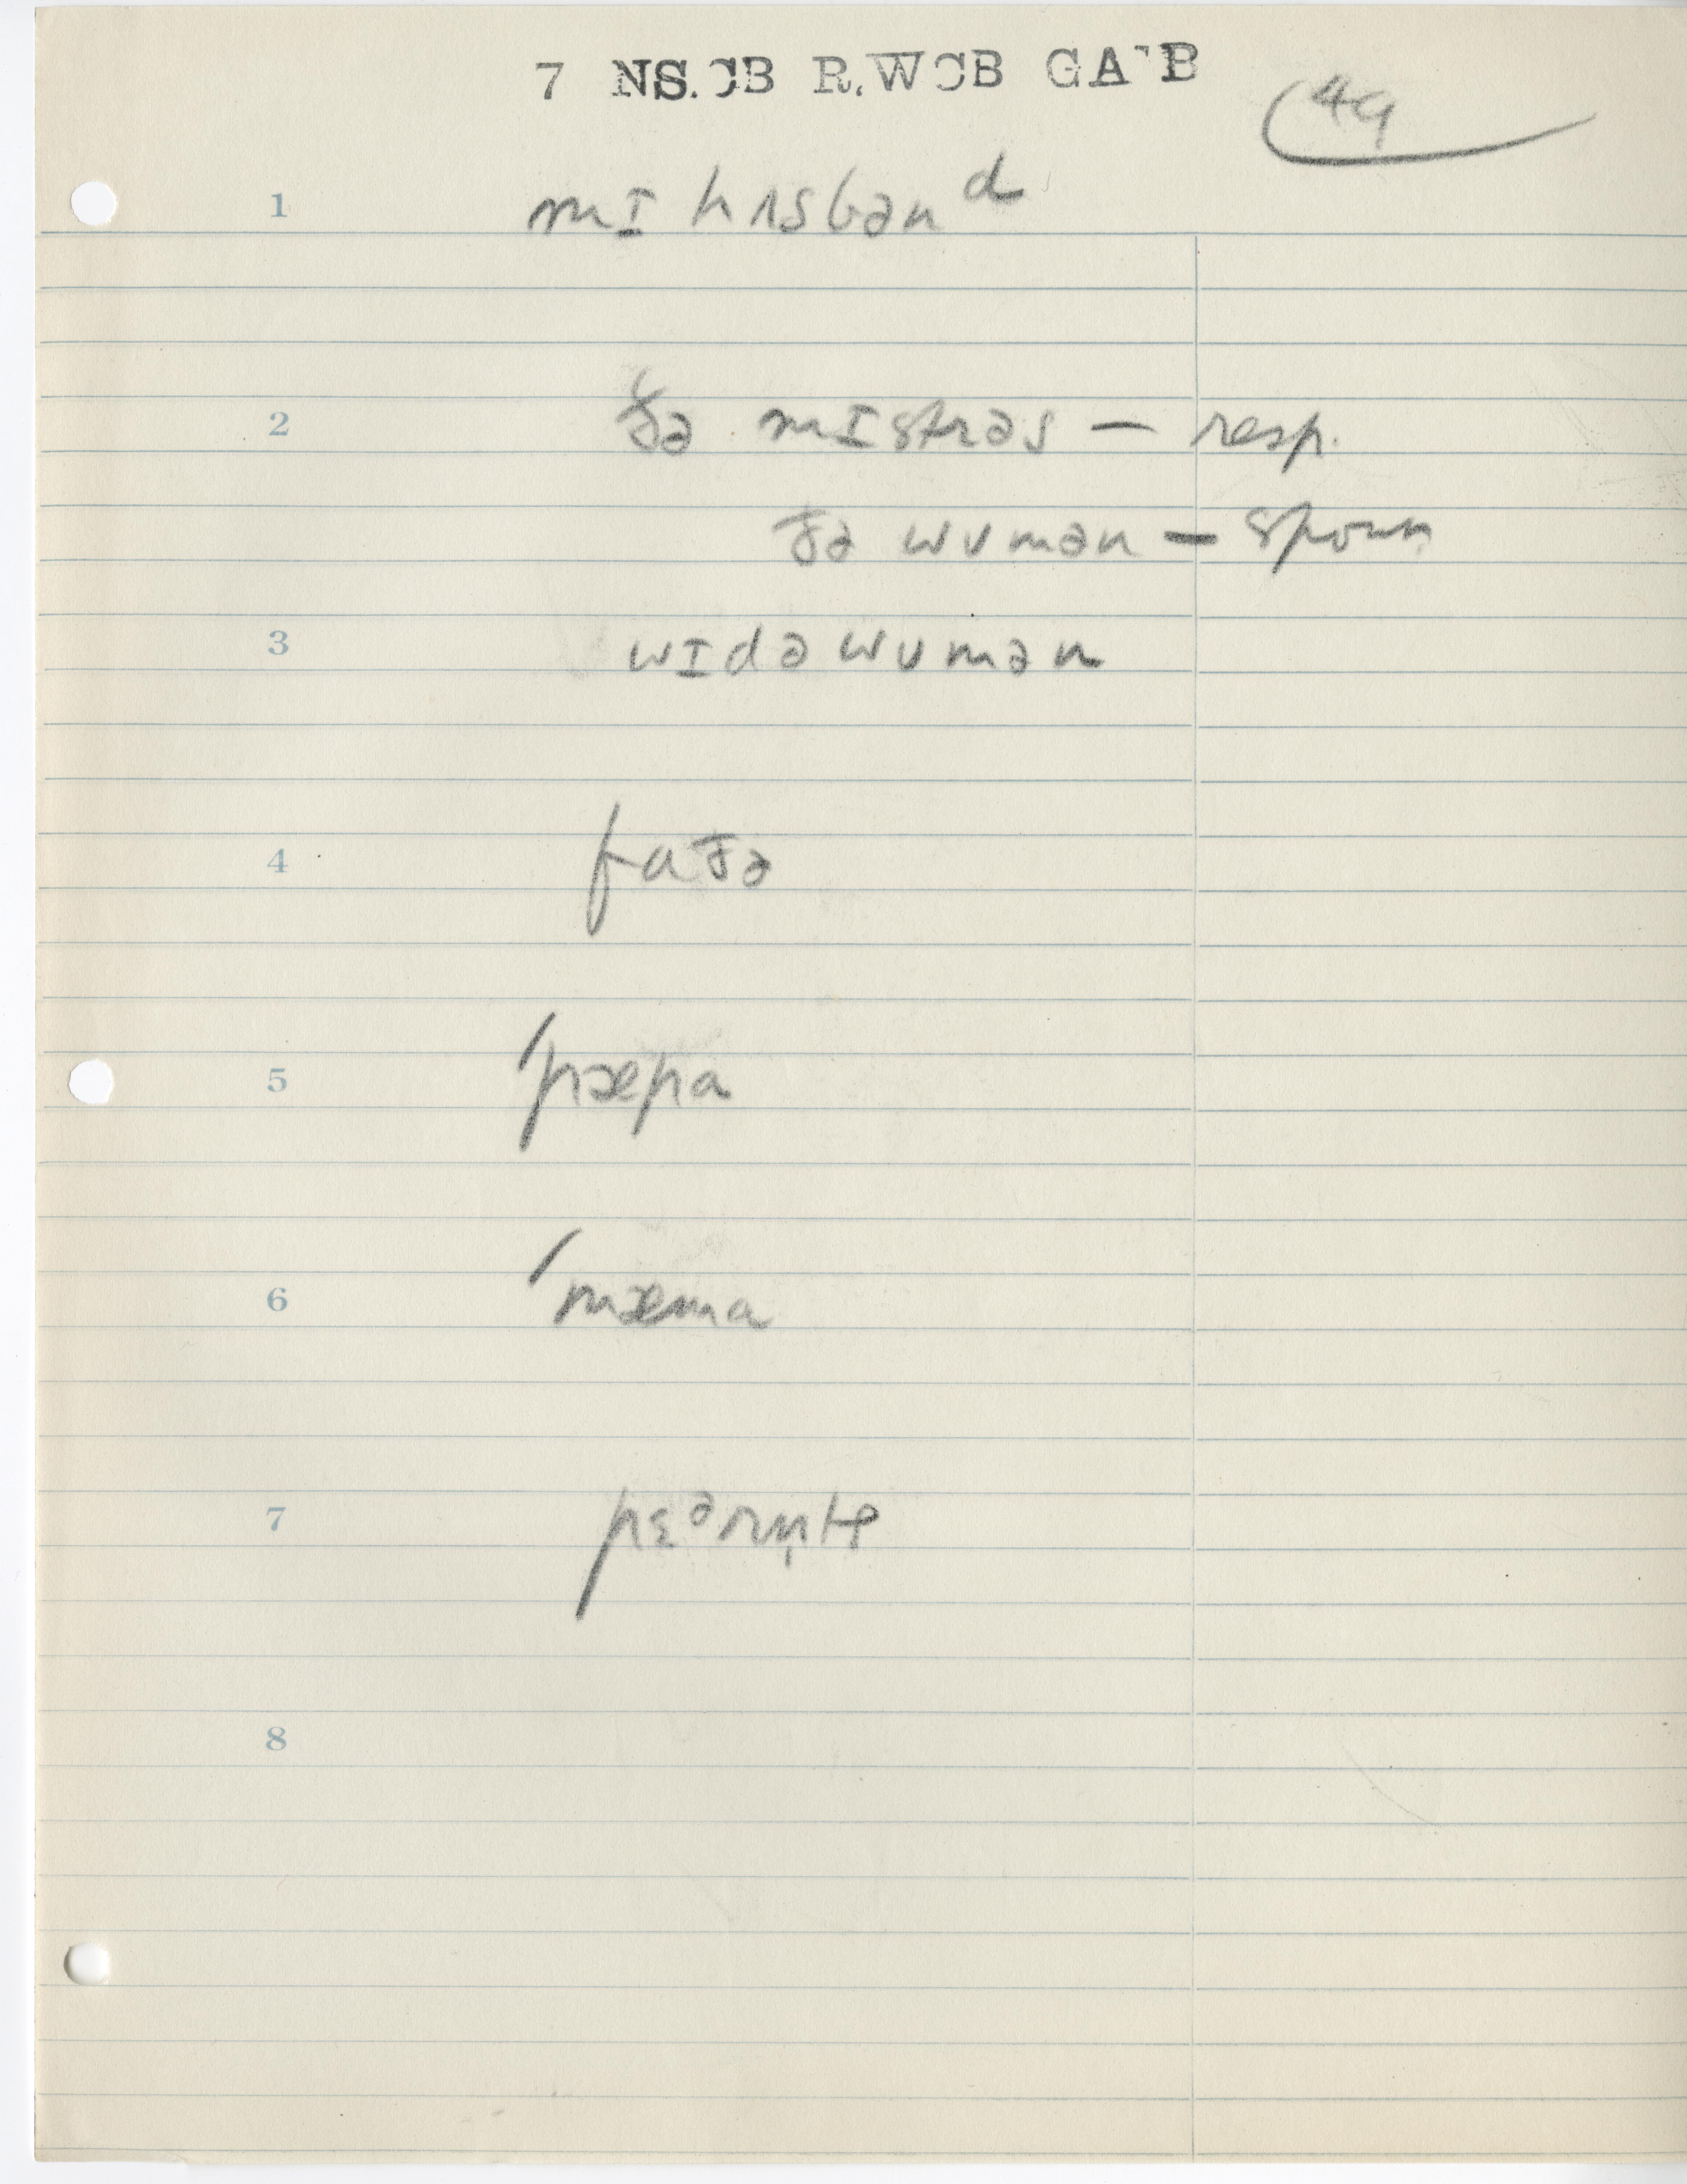 7 NS.CB R.WCB GA'B
49
1 mɪ hʌsbənᵈ
2 ðə mɪstrəs — resp.
ðə wʊmən —
3 wɪdəwʊmən
4 faðə
5 ˈpæpa
6 ˈmæma
7
8